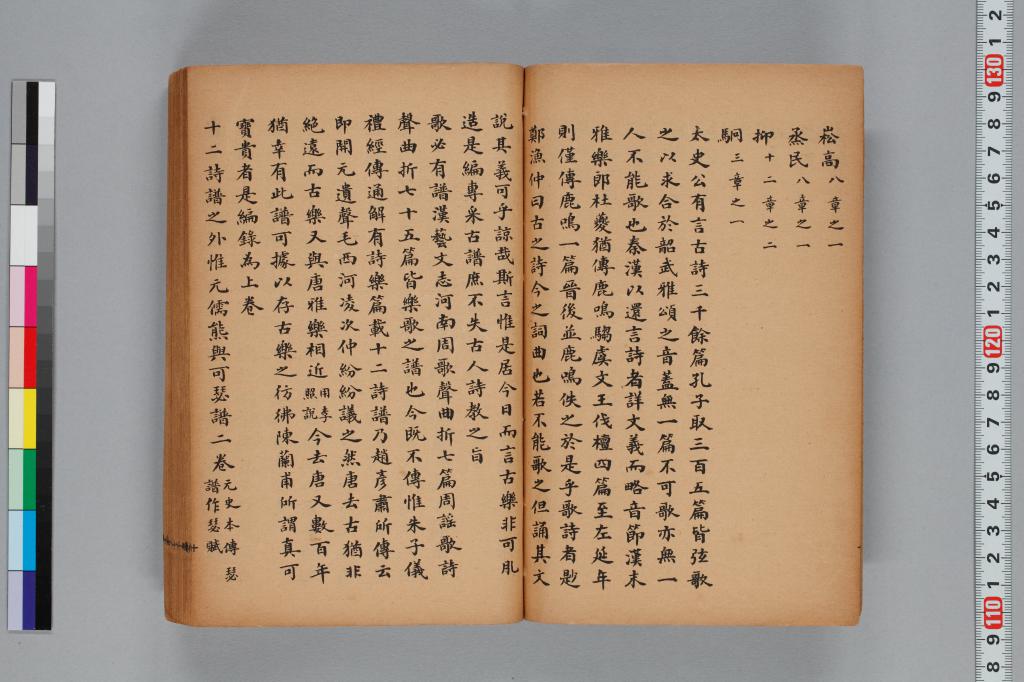 崧高八章之一
烝民八章之一
抑十二章之二
駉三章之一
太史公有言古詩三千餘篇孔子取三百五篇皆弦歌
之以求合於韶武雅頌之音蓋無一篇不可歌亦無一
人不能歌也秦漢以還言詩者詳文義而略音節漢末
雅樂郎杜夔猶傳鹿鳴騶虞文王伐檀四篇至左延年
則僅傳鹿鳴一篇晉後並鹿鳴佚之於是乎歌詩者尟
鄭漁仲曰古之詩今之詞曲也若不能歌之但誦其文
說其義可乎諒哉斯言惟是居今日而言古樂非可肊
造是編專采古譜庶不失古人詩教之旨
歌必有譜漢藝文志河南周歌聲曲折七篇周謠歌詩
聲曲折七十五篇皆樂歌之譜也今既不傳惟朱子儀
禮經傳通解有詩樂篇載十二詩譜乃趙彥肅所傳云
即開元遺聲毛西河凌次仲紛紛議之然唐去古猶非
絕遠而古樂又與唐雅樂相近用李照說今去唐又數百年
猶幸有此譜可據以存古樂之彷彿陳蘭甫所謂真可
寶貴者是編錄為上卷
十二詩譜之外惟元儒熊與可瑟譜二卷元史本傳瑟譜作瑟賦
12
130
9
8
7
6
5
4
3
2
1
120
9
8
7
6
5
4
3
2
1
110
9
8